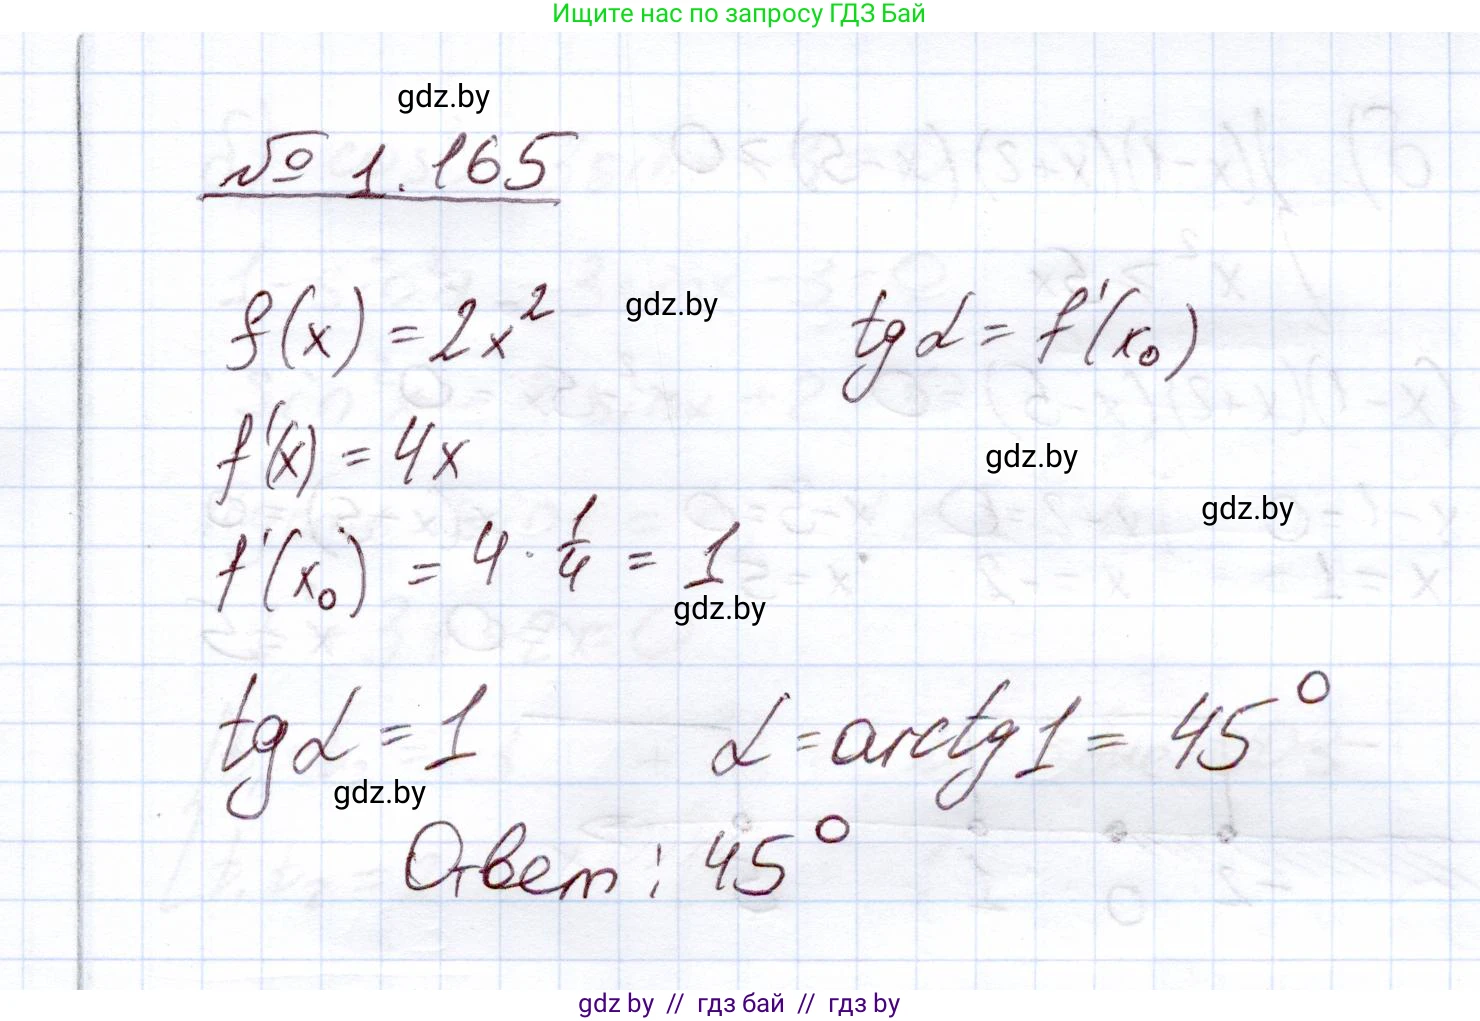 Ищите нас по запросу ГДЗ Бай
gdz.by
№ 1.165
f(x) = 2x² gdz.by tg α = f'(x₀)
f'(x) = 4x gdz.by
gdz.by
f'(x₀) = 4 · 1/4 = 1
gdz.by
tg α = 1 α = arctg 1 = 45°
gdz.by
Ответ: 45°
gdz.by // гдз бай // гдз by